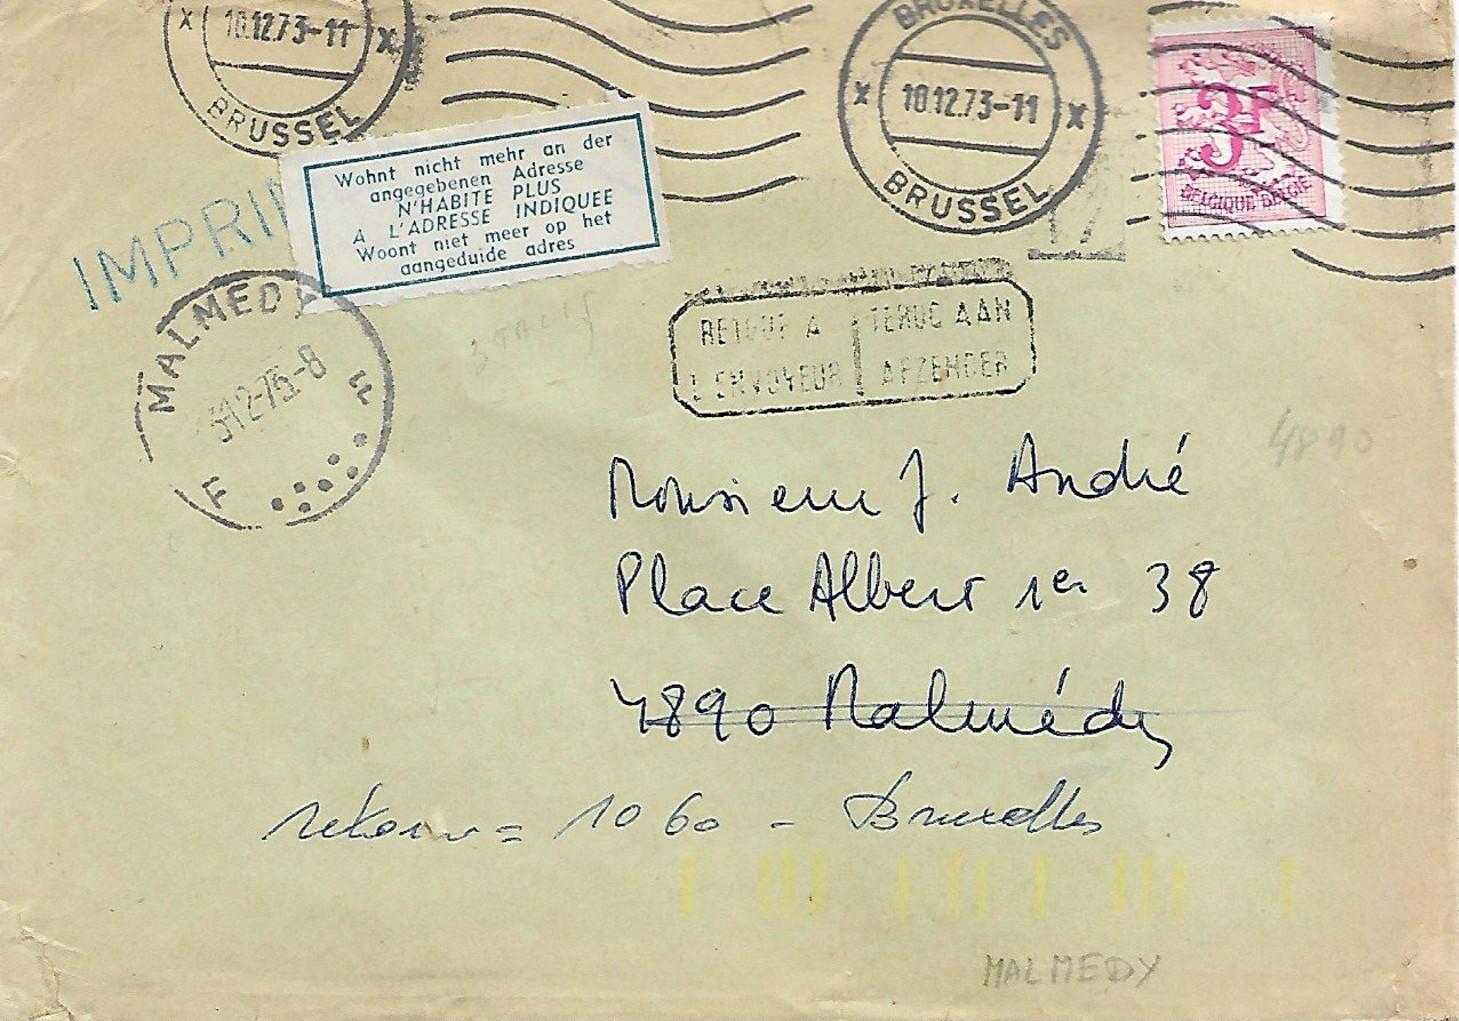 10.12.73-11
BRUSSEL
BRUXELLES
10.12.73-11
BRUSSEL
3F
BELGIQUE BELGIE
Wohnt nicht mehr an der
angegebenen Adresse
N'HABITE PLUS
A L'ADRESSE INDIQUEE
Woont niet meer op het
aangeduide adres
IMPRI
MALMEDY
F F
RETOUR A
L'ENVOYEUR
TERUG AAN
AFZENDER
4890
Monsieur J. André
Place Albert 1er 38
4890 Malmédy
retour = 1060 - Bruxelles
MALMEDY